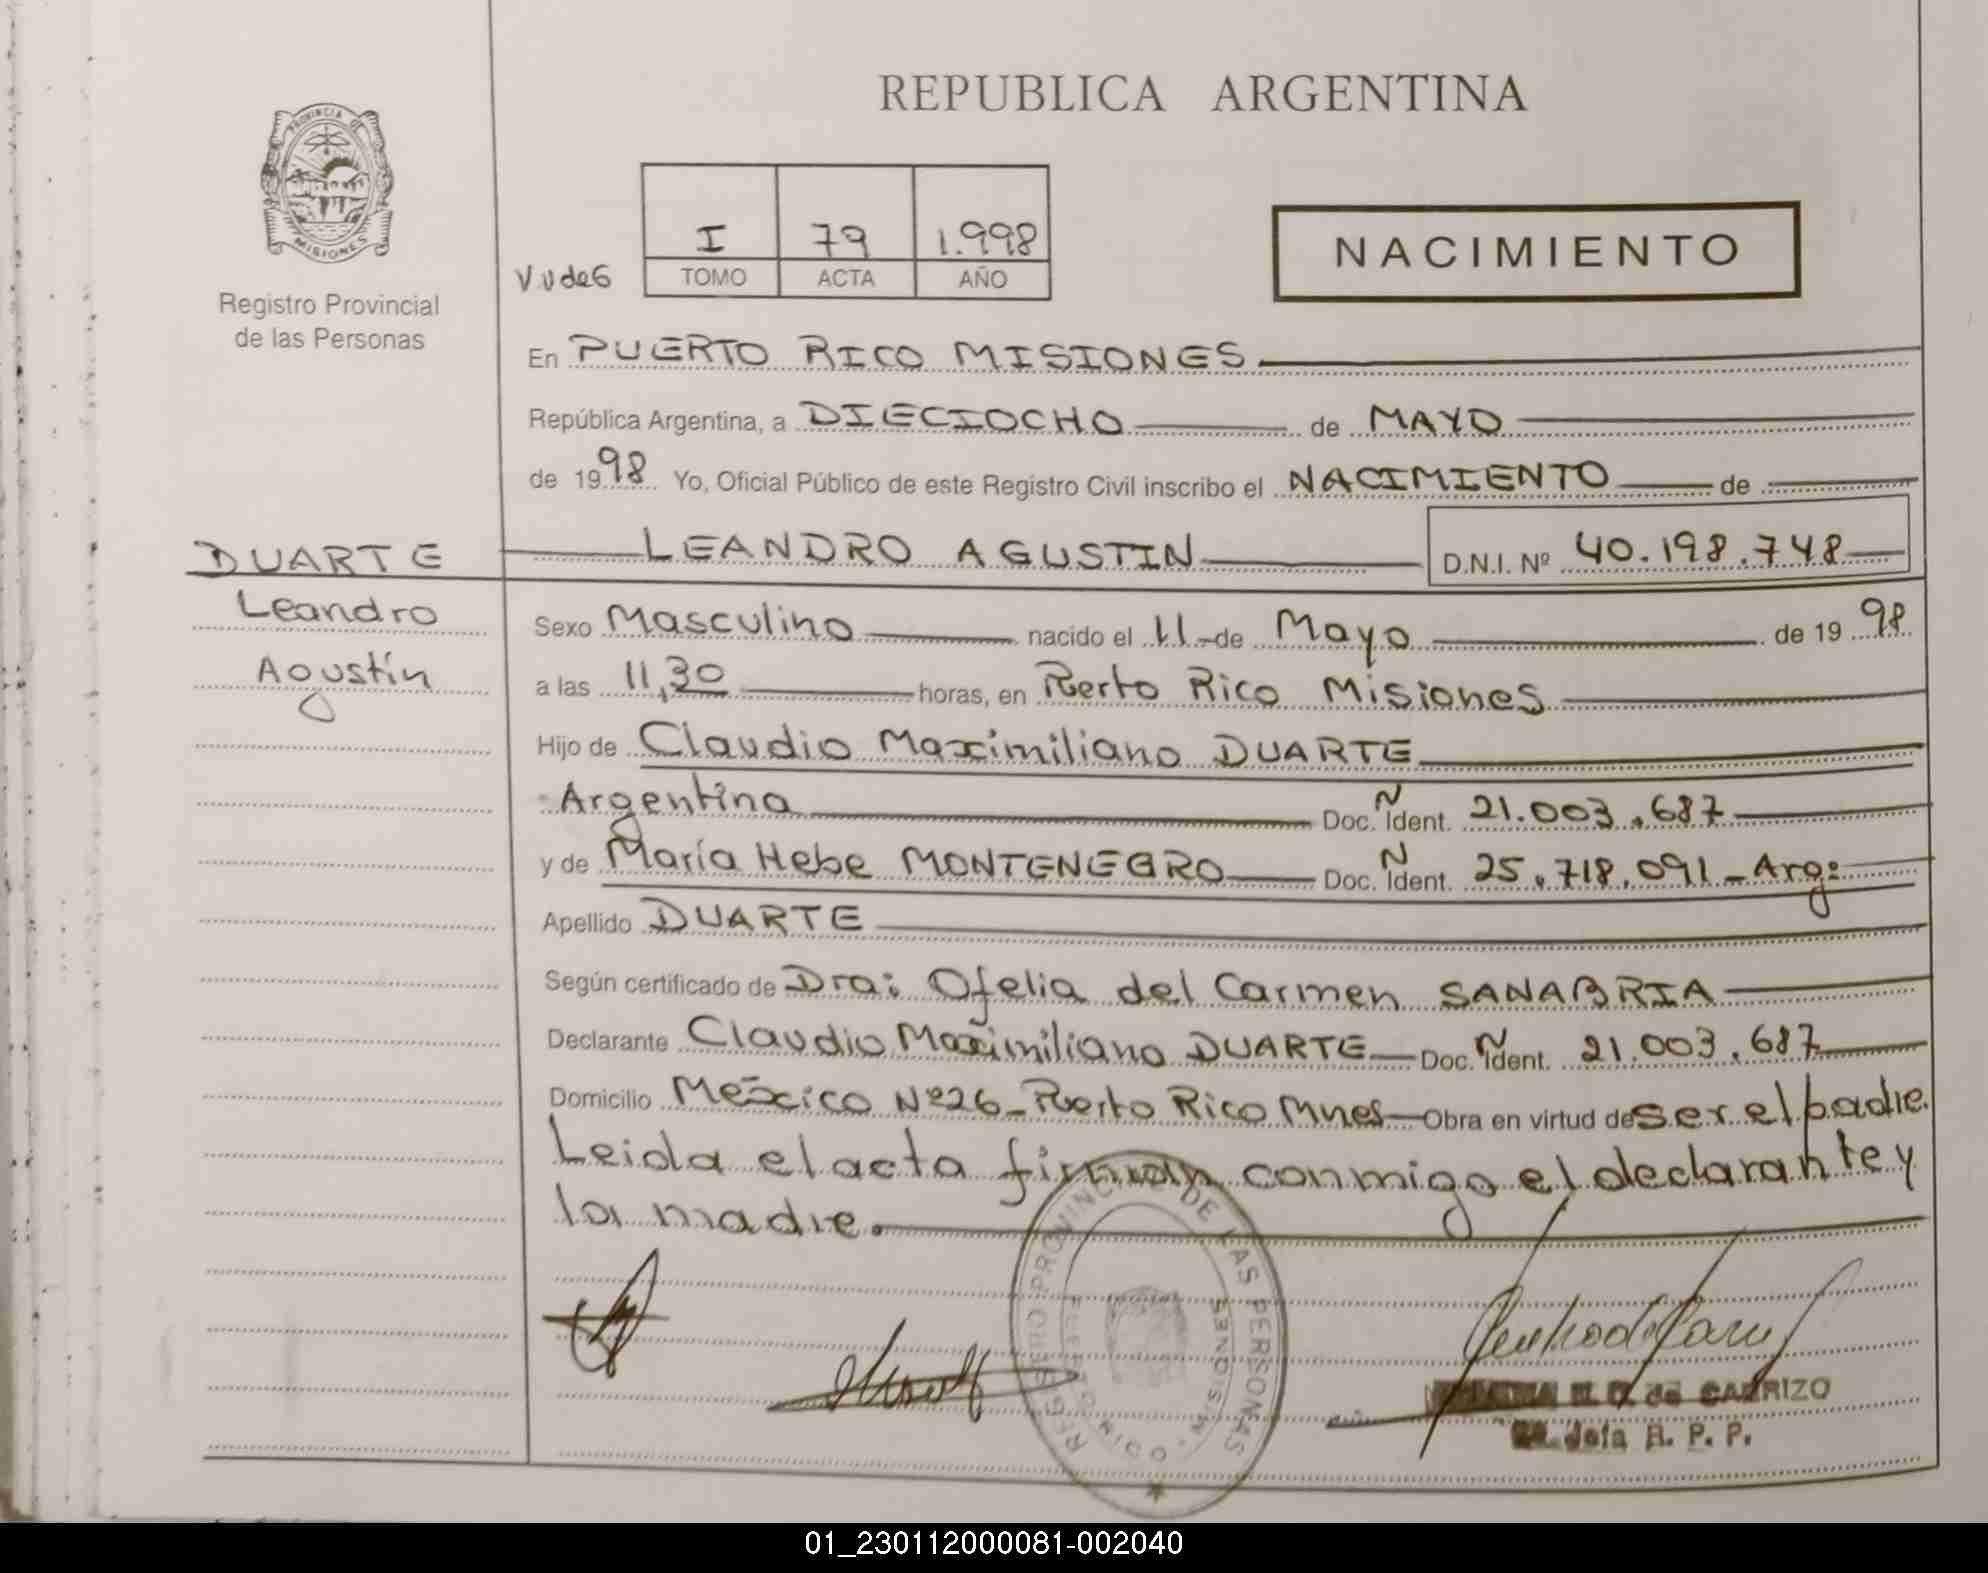 REPUBLICA ARGENTINA
PROVINCIA DE
MISIONES
Registro Provincial
de las Personas
I 79 1.998
TOMO ACTA AÑO
NACIMIENTO
En PUERTO RICO MISIONES
República Argentina, a DIECIOCHO de MAYO
de 1998 Yo, Oficial Público de este Registro Civil inscribo el NACIMIENTO de
DUARTE LEANDRO AGUSTIN D.N.I. Nº 40.198.748
Leandro
Agustín
Sexo Masculino nacido el 11 de Mayo de 1998
a las 11,30 horas, en Puerto Rico Misiones
Hijo de Claudio Maximiliano DUARTE
Argentina Doc. Ñ Ident. 21.003.687
y de María Hebe MONTENEGRO Doc. Ñ Ident. 25.718.091 - Arg:
Apellido DUARTE
Según certificado de Dra: Ofelia del Carmen SANABRIA
Declarante Claudio Maximiliano DUARTE Doc. Ñ Ident. 21.003.687
Domicilio México Nº 26 - Puerto Rico Mnes Obra en virtud de ser el padre.
Leida el acta firman conmigo el declarante y
la madre.
REGISTRO PROVINCIAL DE LAS PERSONAS
PUERTO RICO - MISIONES
de CARRIZO
Jefa R. P. P.
01_230112000081-002040